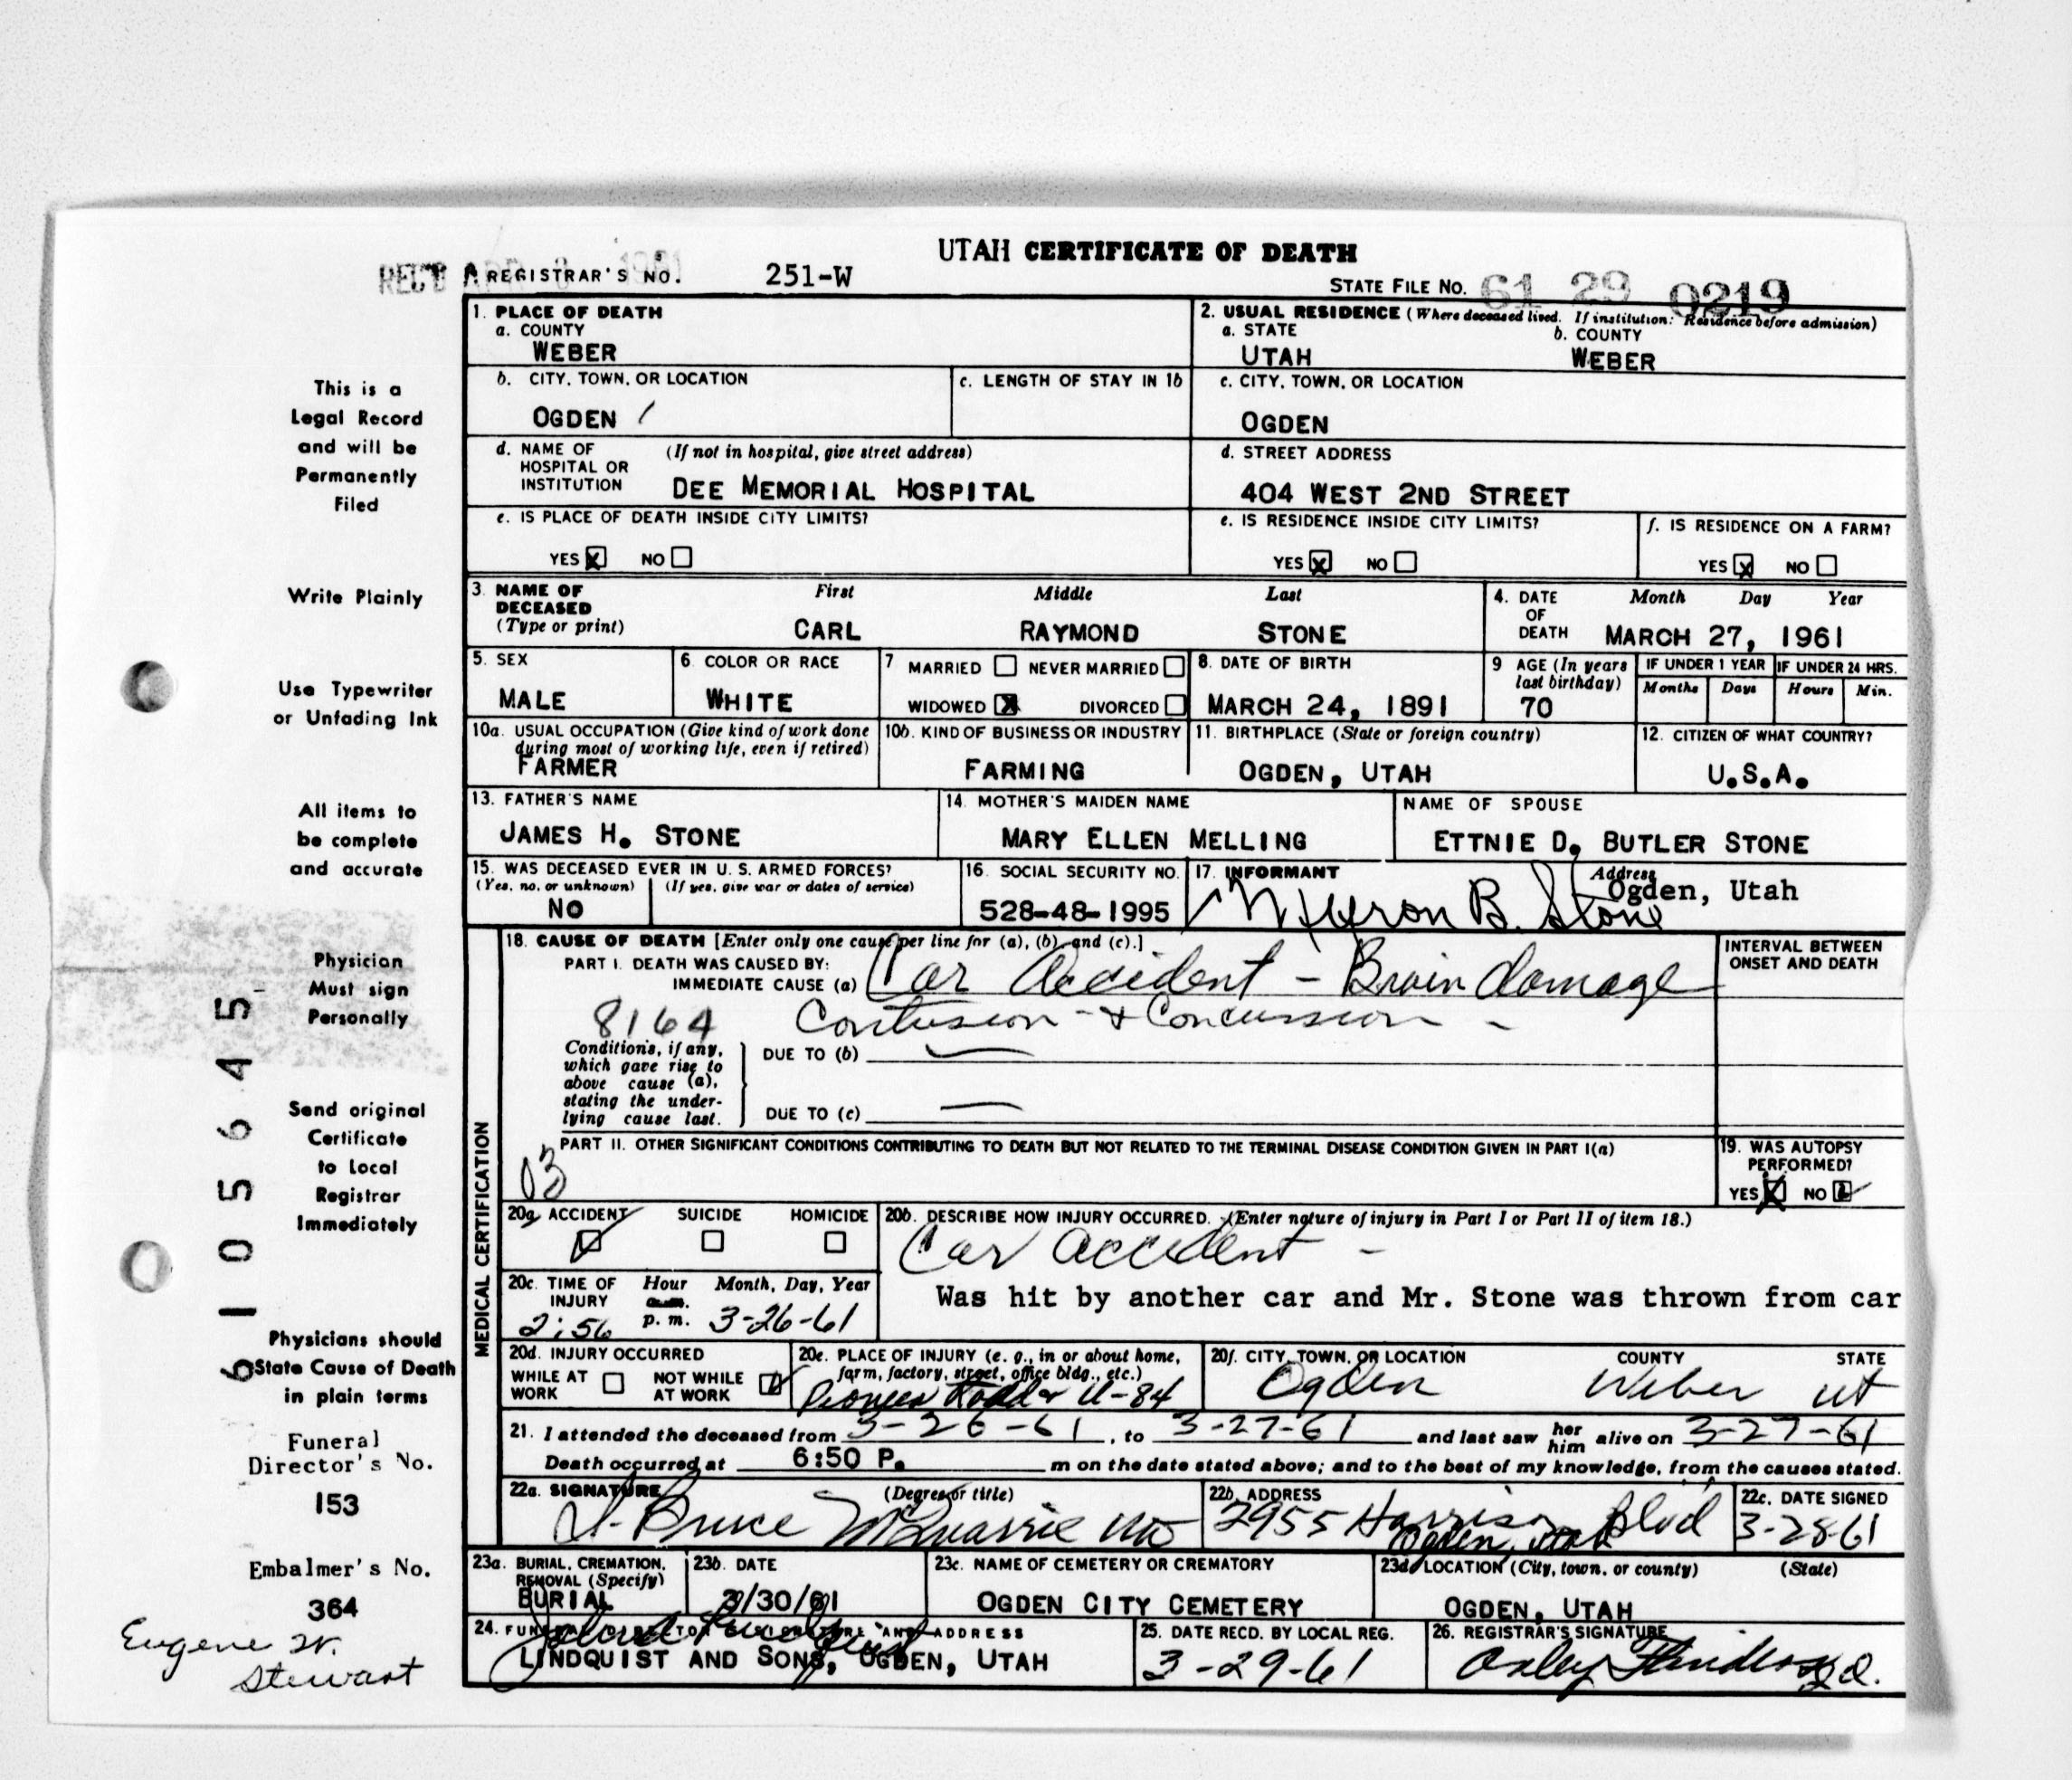 UTAH CERTIFICATE OF DEATH
REC'D APR 3 1961 REGISTRAR'S NO. 251-W
STATE FILE NO. 61 29 0219
1. PLACE OF DEATH
a. COUNTY
WEBER
2. USUAL RESIDENCE (Where deceased lived. If institution: Residence before admission)
a. STATE b. COUNTY
UTAH WEBER
b. CITY, TOWN, OR LOCATION
OGDEN /
c. LENGTH OF STAY IN 1b
c. CITY, TOWN, OR LOCATION
OGDEN
d. NAME OF HOSPITAL OR INSTITUTION (If not in hospital, give street address)
DEE MEMORIAL HOSPITAL
d. STREET ADDRESS
404 WEST 2ND STREET
e. IS PLACE OF DEATH INSIDE CITY LIMITS?
YES X NO
e. IS RESIDENCE INSIDE CITY LIMITS?
YES X NO
f. IS RESIDENCE ON A FARM?
YES X NO
3. NAME OF DECEASED (Type or print) First Middle Last
CARL RAYMOND STONE
4. DATE OF DEATH Month Day Year
MARCH 27, 1961
5. SEX
MALE
6. COLOR OR RACE
WHITE
7 MARRIED NEVER MARRIED
WIDOWED X DIVORCED
8. DATE OF BIRTH
MARCH 24, 1891
9 AGE (In years last birthday)
70
IF UNDER 1 YEAR IF UNDER 24 HRS.
Months Days Hours Min.
10a. USUAL OCCUPATION (Give kind of work done during most of working life, even if retired)
FARMER
10b. KIND OF BUSINESS OR INDUSTRY
FARMING
11. BIRTHPLACE (State or foreign country)
OGDEN, UTAH
12. CITIZEN OF WHAT COUNTRY?
U.S.A.
13. FATHER'S NAME
JAMES H. STONE
14. MOTHER'S MAIDEN NAME
MARY ELLEN MELLING
NAME OF SPOUSE
ETTNIE D. BUTLER STONE
15. WAS DECEASED EVER IN U. S. ARMED FORCES?
(Yes, no, or unknown) (If yes, give war or dates of service)
NO
16. SOCIAL SECURITY NO.
528-48-1995
17. INFORMANT Address
Myron B. Stone Ogden, Utah
MEDICAL CERTIFICATION
18. CAUSE OF DEATH [Enter only one cause per line for (a), (b), and (c).]
PART I. DEATH WAS CAUSED BY:
IMMEDIATE CAUSE (a) Car Accident - Brain damage
8164 Contusion - & Concussion -
INTERVAL BETWEEN ONSET AND DEATH
Conditions, if any, which gave rise to above cause (a), stating the underlying cause last.
DUE TO (b) —
DUE TO (c) —
PART II. OTHER SIGNIFICANT CONDITIONS CONTRIBUTING TO DEATH BUT NOT RELATED TO THE TERMINAL DISEASE CONDITION GIVEN IN PART I(a)
03
19. WAS AUTOPSY PERFORMED?
YES NO
20a. ACCIDENT SUICIDE HOMICIDE
20b. DESCRIBE HOW INJURY OCCURRED. (Enter nature of injury in Part I or Part II of item 18.)
Car accident -
Was hit by another car and Mr. Stone was thrown from car
20c. TIME OF INJURY Hour Month, Day, Year
2:56 a.m. p. m. 3-26-61
20d. INJURY OCCURRED
WHILE AT WORK NOT WHILE AT WORK
20e. PLACE OF INJURY (e. g., in or about home, farm, factory, street, office bldg., etc.)
Pioneer Road & U-84
20f. CITY, TOWN, OR LOCATION COUNTY STATE
Ogden Weber Ut
21. I attended the deceased from 3-26-61, to 3-27-61 and last saw her him alive on 3-27-61
Death occurred at 6:50 P. m on the date stated above; and to the best of my knowledge, from the causes stated.
22a. SIGNATURE (Degree or title)
Bruce McQuarrie MD
22b. ADDRESS
2955 Harrison Blvd
Ogden, Utah
22c. DATE SIGNED
3-28-61
23a. BURIAL, CREMATION, REMOVAL (Specify)
BURIAL
23b. DATE
3/30/61
23c. NAME OF CEMETERY OR CREMATORY
OGDEN CITY CEMETERY
23d. LOCATION (City, town, or county) (State)
OGDEN, UTAH
24. FUNERAL DIRECTOR'S SIGNATURE AND ADDRESS
LINDQUIST AND SONS, OGDEN, UTAH
25. DATE RECD. BY LOCAL REG.
3-29-61
26. REGISTRAR'S SIGNATURE
This is a
Legal Record
and will be
Permanently
Filed
Write Plainly
Use Typewriter
or Unfading Ink
All items to
be complete
and accurate
Physician
Must sign
Personally
Send original
Certificate
to Local
Registrar
Immediately
Physicians should
State Cause of Death
in plain terms
6105645
Funeral
Director's No.
153
Embalmer's No.
364
Eugene W.
Stewart